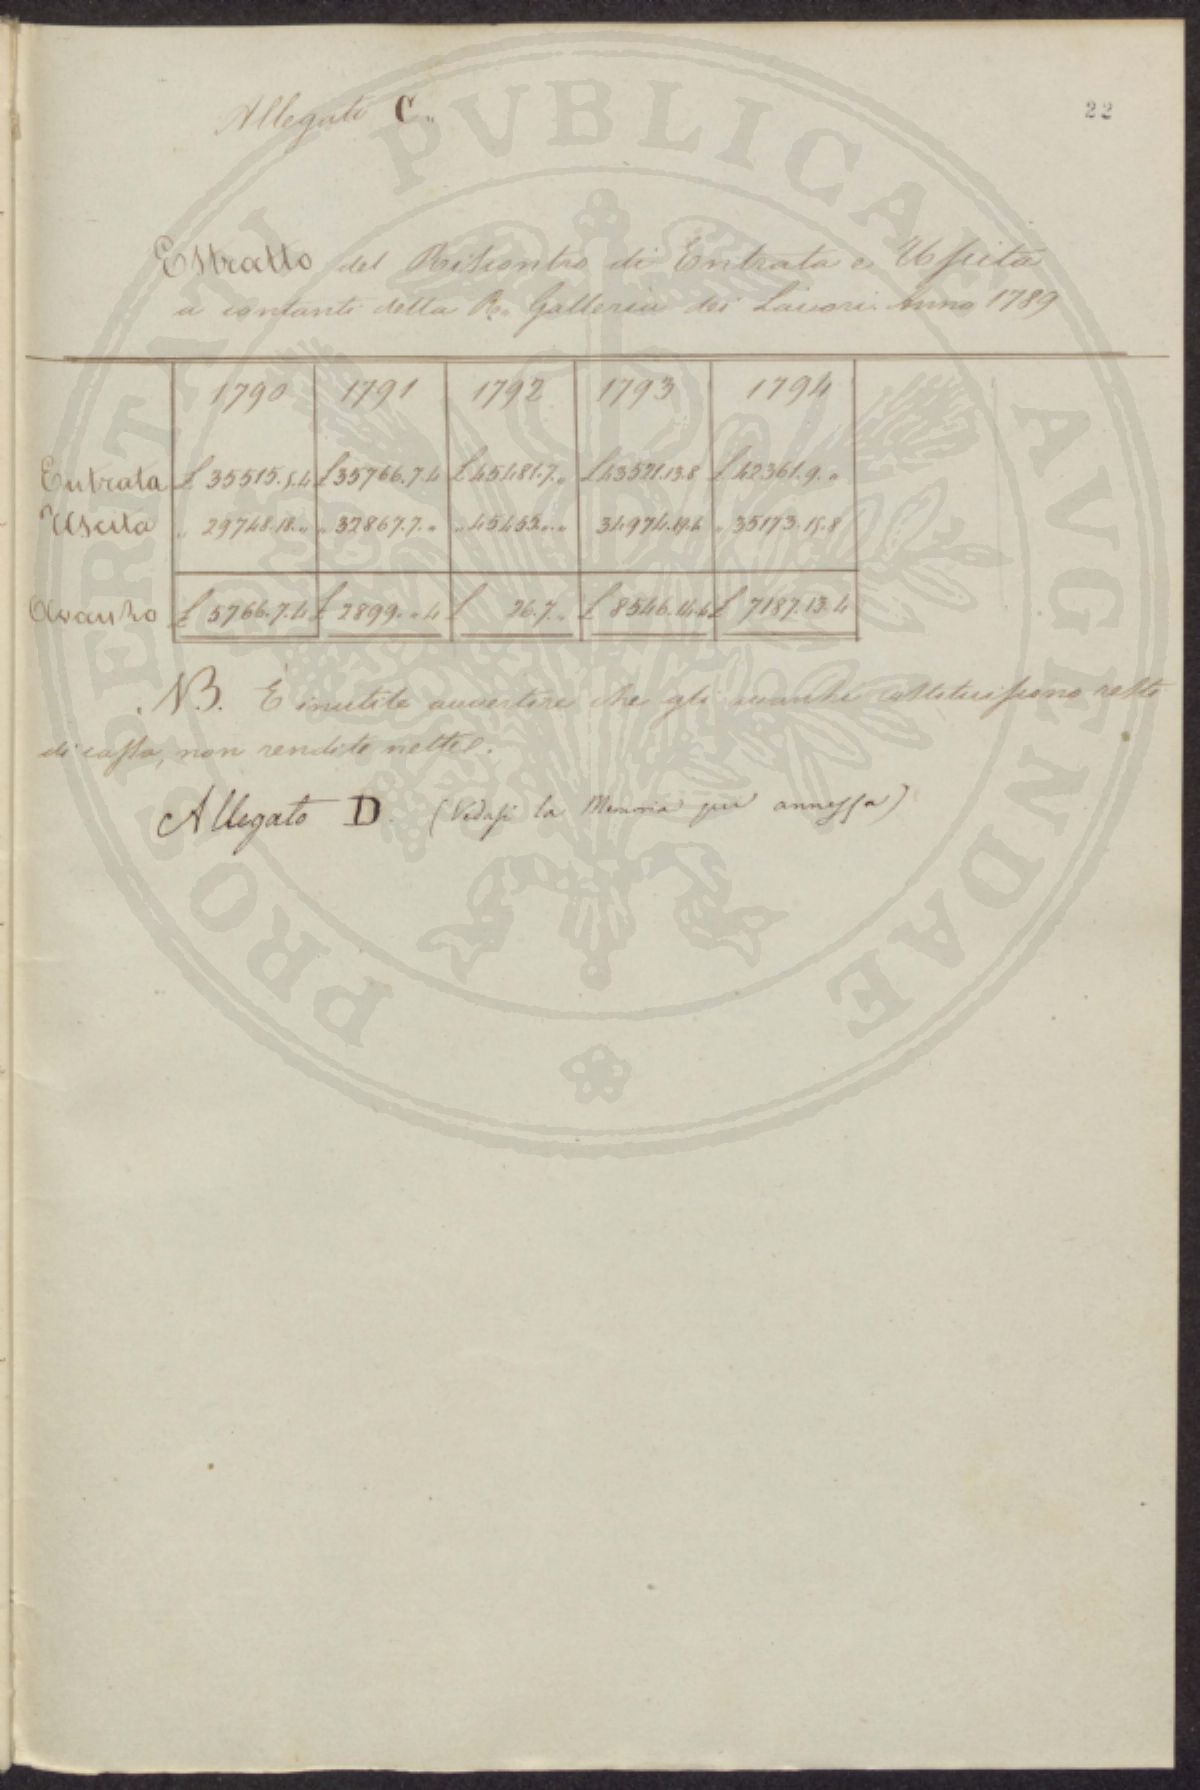 Allegato C.
22
Estratto del Riscontro di Entrata e Uscita
a contanti della R. Galleria dei Lavori. Anno 1789
1790 1791 1792 1793 1794
Entrata £ 35515.5.4 £ 35766.7.4 £ 45481.7.„ £ 43521.13.8 £ 42361.9.„
Uscita „ 29748.18.„ „ 32867.7.„ „ 45455.„.„ 34974.19.6 „ 35173.15.8
Avanzo £ 5766.7.4 £ 2899.„.4 £ 26.7.„ £ 8546.14.6 £ 7187.13.4
NB. È inutile avvertire che gli avanzi costituissono resto
di cassa, non rendite nette.
Allegato D. (Vedasi la Memoria qui annessa)
PROSPERITATI PVBLICAE AVGENDAE